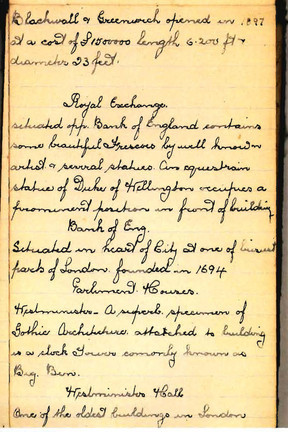 Blackwall & Greenwich opened in 1897
at a cost of £1500000 length 6.200 ft &
diameter 23 feet.
Royal Exchange.
situated opp. Bank of England contains
some beautiful Frescoes by well known
artist & serval statues. An equestrain
statue of Duke of Wellington occupies a
prominent position in front of building
Bank of Eng.
Situated in heart of City at one of busiest
parts of London. founded in 1694
Parliment Houses.
Westminster - A superb specimen of
Gothic Architecture. attatched to building
is a clock Tower comonly known as
Big Ben.
Westminister Hall
One of the oldest buildings in London